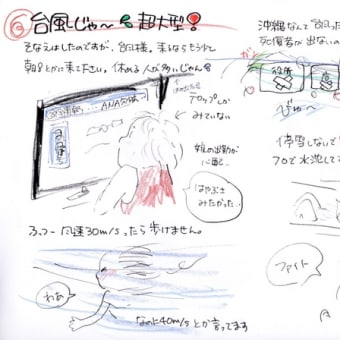 ⑥ 台風じゃ〜 超大型!
そなえはしたのですが、台風様。来るならもう少し
朝とかに来て下さい。休める人が多いじゃん
ANA
テロップしか
みていない
娘の出勤が
心配…
はやぶさ
みたかった…
ふつー 風速30m/sったら歩けません。
わぁ
なのに40m/sとか言ってます
沖縄なんて台風
死傷者が出ない
停電しない
プロで水泳して
ファイト